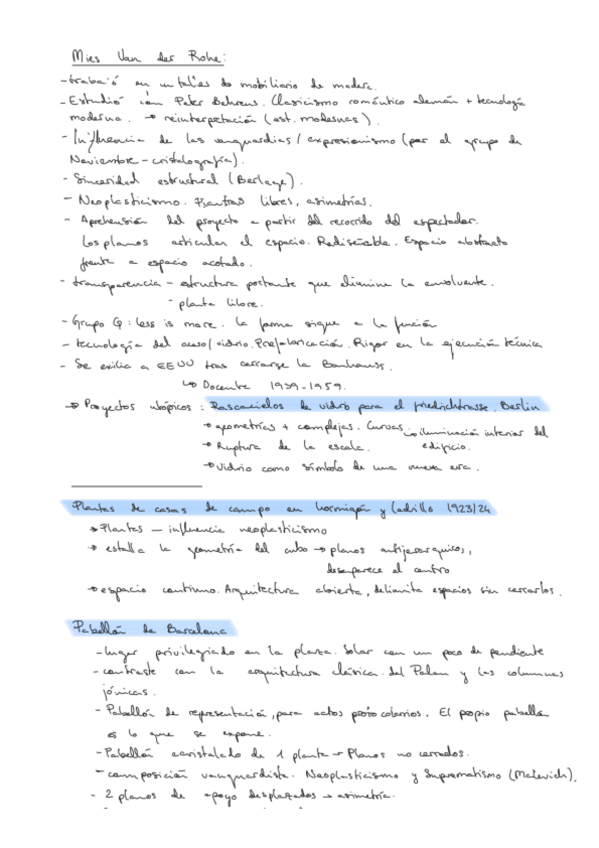 Mies Van der Rohe:
- trabajó en un taller de mobiliario de madera.
- Estudió con Peter Behrens. Clasicismo romántico alemán + tecnología
moderna. → reinterpretación (est. modernas).
- Influencia de las vanguardias / expresionismo (por el grupo de
Noviembre - cristalografía).
- Sinceridad estructural (Berlage).
- Neoplasticismo. Plantas libres, asimetrías.
- Aprehensión del proyecto a partir del recorrido del espectador.
Los planos articulan el espacio. Rediseñable. Espacio abstracto
frente a espacio acotado.
- transparencia - estructura portante que elimine la envolvente.
- planta libre.
- Grupo G: less is more. la forma sigue a la función
- tecnología del acero/vidrio. Prefabricación. Rigor en la ejecución técnica
- Se exilia a EEUU tras cerrarse la Bauhaus.
↳ Docente 1939-1959.
→ Proyectos utópicos: Rascacielos de vidrio para el friedrichtrasse. Berlin
→ geometrías + complejas. Curvas → iluminación interior del
edificio.
→ Ruptura de la escala.
→ Vidrio como símbolo de una nueva era.
Plantas de casas de campo en hormigón y ladrillo 1923/24
→ Plantas - influencia neoplasticismo
→ estalla la geometría del cubo → planos antijerarquicos,
desaparece el centro
→ espacio continuo. Arquitectura abierta, delimita espacios sin cerrarlos.
Pabellón de Barcelona
- lugar privilegiado en la plaza. Solar con un poco de pendiente
- contraste con la arquitectura clásica del Palau y las columnas
jónicas.
- Pabellón de representación, para actos protocolarios. El propio pabellón
es lo que se expone.
- Pabellón acristalado de 1 planta → Planos no cerrados.
- composición vanguardista. Neoplasticismo y Suprematismo (Malevich).
- 2 planos de apoyo desplazados → asimetría.